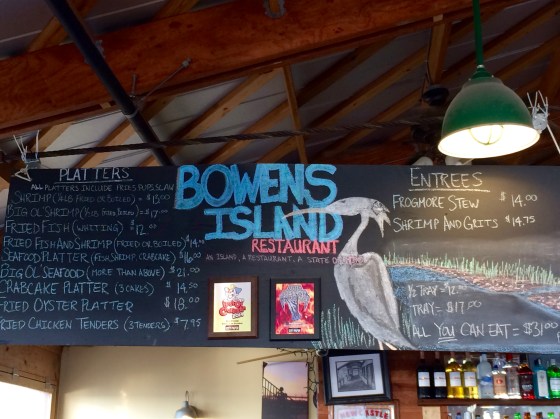 PLATTERS
ALL PLATTERS INCLUDE FRIES PUPS SLAW
SHRIMP (1/4 LB FRIED OR BOILED) $15.00
BIG OL' SHRIMP (1/2 LB FRIED BOILED) $17.00
FRIED FISH (WHITING) $12.00
FRIED FISH AND SHRIMP (FRIED OR BOILED) $14.50
SEAFOOD PLATTER (FISH, SHRIMP CRABCAKE) $16.00
BIG OL' SEAFOOD (MORE THAN ABOVE) $21.00
CRABCAKE PLATTER (3 CAKES) $14.50
FRIED OYSTER PLATTER $18.00
FRIED CHICKEN TENDERS (3 TENDERS) $7.95
BOWENS
ISLAND
RESTAURANT
AN ISLAND, A RESTAURANT, A STATE OF
ENTREES
FROGMORE STEW $14.00
SHRIMP AND GRITS $14.75
1/2 TRAY = 12
TRAY = $17.00
ALL YOU CAN EAT = $31.00
NEWCASTLE